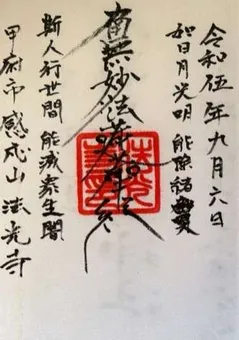 令和伍年九月六日
如日月光明 能除諸幽冥
南無妙法蓮華経
斯人行世間 能滅衆生闇
甲府市感応山 法光寺